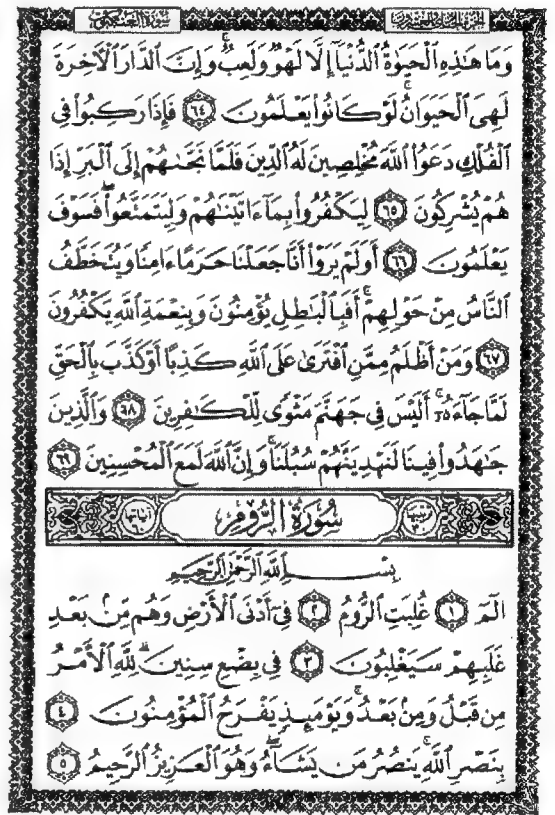 سورة العنكبوت الجزء الحادي والعشرون
وَمَا هَٰذِهِ ٱلْحَيَوٰةُ ٱلدُّنْيَآ إِلَّا لَهْوٌ وَلَعِبٌ ۚ وَإِنَّ ٱلدَّارَ ٱلْءَاخِرَةَ
لَهِىَ ٱلْحَيَوَانُ ۚ لَوْ كَانُوا۟ يَعْلَمُونَ ٦٤ فَإِذَا رَكِبُوا۟ فِى
ٱلْفُلْكِ دَعَوُا۟ ٱللَّهَ مُخْلِصِينَ لَهُ ٱلدِّينَ فَلَمَّا نَجَّىٰهُمْ إِلَى ٱلْبَرِّ إِذَا
هُمْ يُشْرِكُونَ ٦٥ لِيَكْفُرُوا۟ بِمَآ ءَاتَيْنَٰهُمْ وَلِيَتَمَتَّعُوا۟ ۖ فَسَوْفَ
يَعْلَمُونَ ٦٦ أَوَلَمْ يَرَوْا۟ أَنَّا جَعَلْنَا حَرَمًا ءَامِنًا وَيُتَخَطَّفُ
ٱلنَّاسُ مِنْ حَوْلِهِمْ ۚ أَفَبِٱلْبَٰطِلِ يُؤْمِنُونَ وَبِنِعْمَةِ ٱللَّهِ يَكْفُرُونَ
٦٧ وَمَنْ أَظْلَمُ مِمَّنِ ٱفْتَرَىٰ عَلَى ٱللَّهِ كَذِبًا أَوْ كَذَّبَ بِٱلْحَقِّ
لَمَّا جَآءَهُۥٓ ۚ أَلَيْسَ فِى جَهَنَّمَ مَثْوًى لِّلْكَٰفِرِينَ ٦٨ وَٱلَّذِينَ
جَٰهَدُوا۟ فِينَا لَنَهْدِيَنَّهُمْ سُبُلَنَا ۚ وَإِنَّ ٱللَّهَ لَمَعَ ٱلْمُحْسِنِينَ ٦٩
ترتيبها ٣٠ سُورَةُ الرُّومِ آياتها
بِسْمِ ٱللَّهِ ٱلرَّحْمَٰنِ ٱلرَّحِيمِ
الٓمٓ ١ غُلِبَتِ ٱلرُّومُ ٢ فِىٓ أَدْنَى ٱلْأَرْضِ وَهُم مِّنۢ بَعْدِ
غَلَبِهِمْ سَيَغْلِبُونَ ٣ فِى بِضْعِ سِنِينَ ۗ لِلَّهِ ٱلْأَمْرُ
مِن قَبْلُ وَمِنۢ بَعْدُ ۚ وَيَوْمَئِذٍ يَفْرَحُ ٱلْمُؤْمِنُونَ ٤
بِنَصْرِ ٱللَّهِ ۚ يَنصُرُ مَن يَشَآءُ ۖ وَهُوَ ٱلْعَزِيزُ ٱلرَّحِيمُ ٥